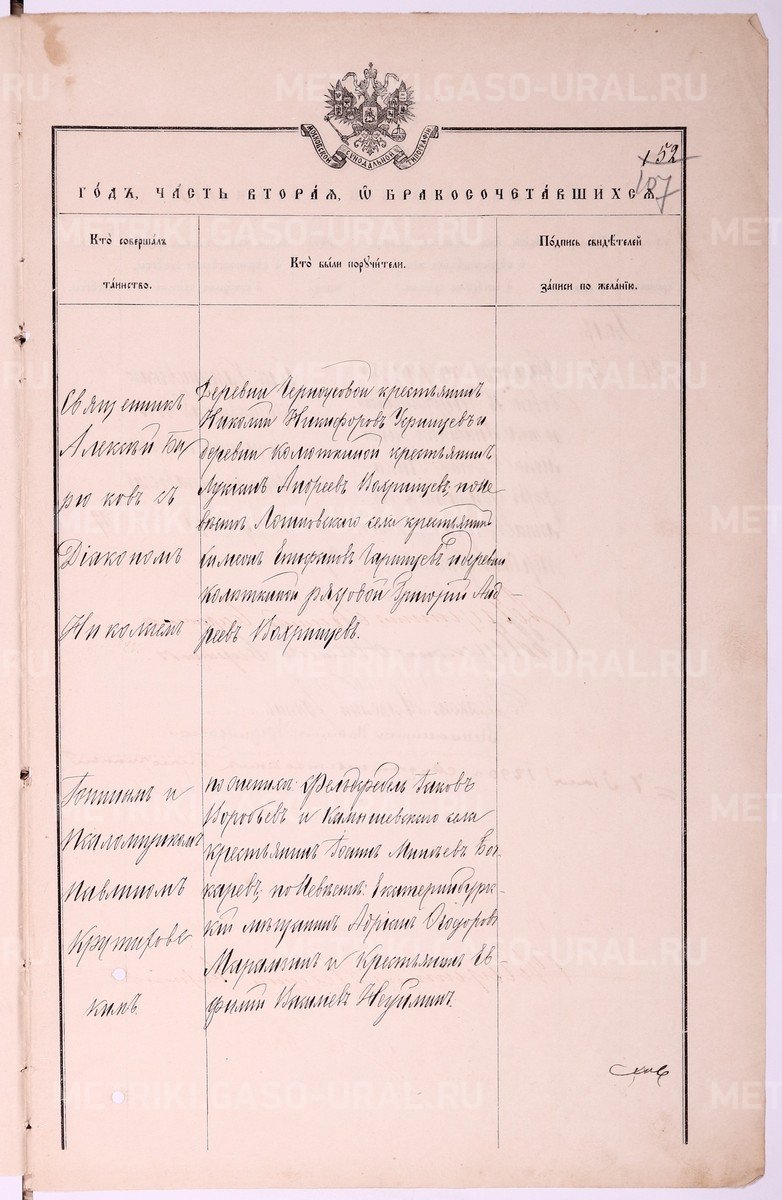 МОСКОВСКОЙ СѴНОДАЛЬНОЙ ТИПОГРАФІИ
152
107
ГОДЪ, ЧАСТЬ ВТОРАЯ, Ѡ БРАКОСОЧЕТАВШИХСЯ
Кто совершалъ
таинство.
Кто были поручители.
Подпись свидѣтелей
записи по желанію.
Священникъ
Алексій Би
рюковъ съ
Діакономъ
Николаемъ
Деревни Черноусовой крестьянинъ
Николай Никифоровъ и
деревни Колюткиной крестьянинъ
Лукіанъ Андреевъ Вахрушевъ; по не
вѣстѣ Логиновского села крестьянинъ
Симеонъ Епифановъ и деревни
Колюткиной рядовой Григорій Анд
реевъ Вахрушевъ.
Гониномъ и
Псаломщикомъ
Павлиномъ
Крутиховс
кимъ.
по женихѣ: Фельдфебель Іаковъ
Воробьевъ и Камышевского села
крестьянинъ Іоаннъ Минѣевъ Бо
каревъ; по Невѣстѣ: Екатеринбург-
кій мѣщанинъ Адріанъ Ѳеодоровъ
Марамзинъ и Крестьянинъ Ев-
фимій Васильевъ Неуйминъ.
METRIKI.GASO-URAL.RU